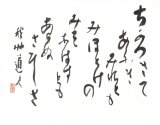 ちかつきて
あふき
みれとも
みほとけの
みそなはすとも
あらぬ
さひしさ
秋艸道人